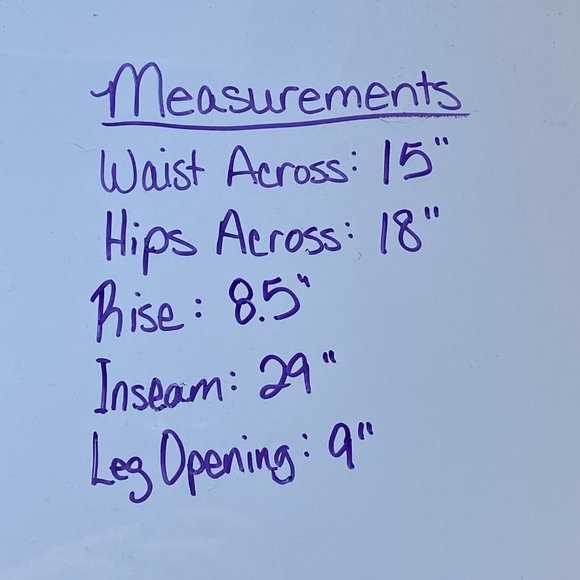 Measurements
Waist Across: 15"
Hips Across: 18"
Rise: 8.5"
Inseam: 29"
Leg Opening: 9"